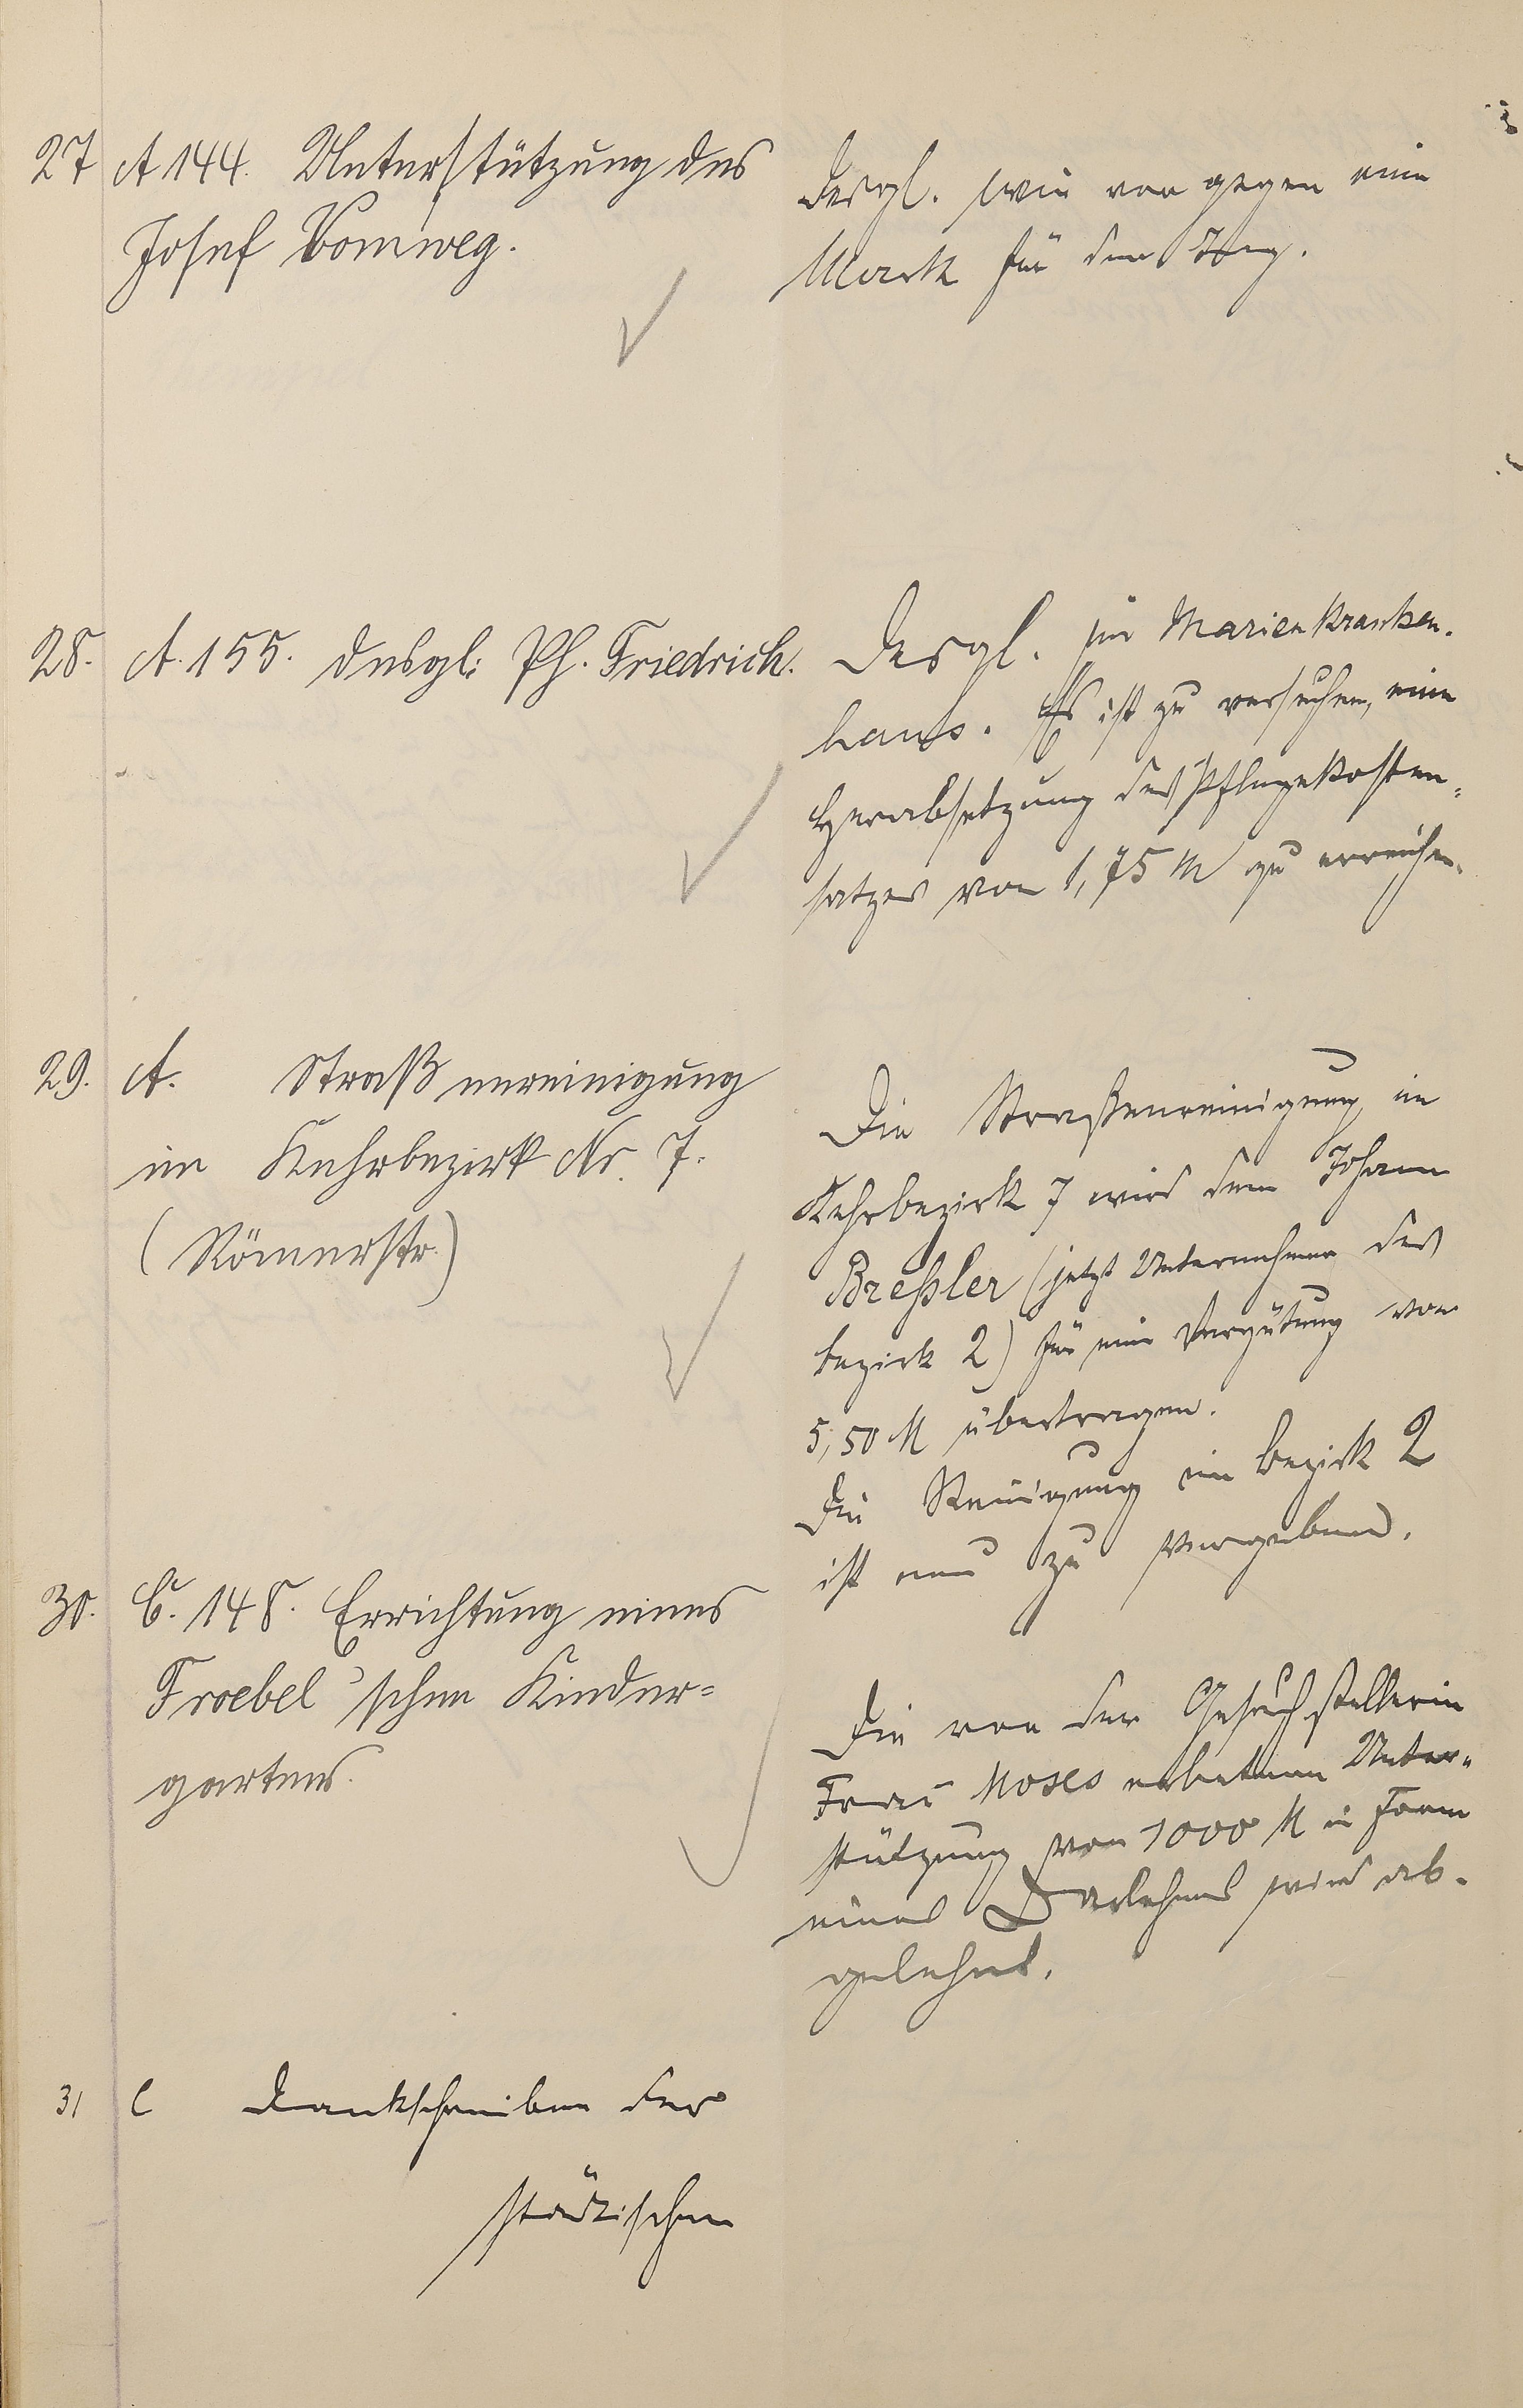 27 A 144. Unterstützung des
Josef Vomweg.
desgl. wie vor gegen eine
Mark für den Tag.
28. A. 155. desgl: Ph. Friedrich.
Desgl. im Marienkranken-
haus. Es ist zu versuchen, eine
Herabsetzung des Pflegekosten-
satzes von 1,75 M zu erreichen.
29. A. Straßenreinigung
im Kehrbezirk Nr. 7.
(Römerstr.)
Die Straßenreinigung im
Kehrbezirk 7 wird dem Johann
Breßler (jetzt Unternehmer des
bezirk 2) für eine Vergütung von
5,50 M übertragen.
Die Reinigung im bezirk 2
ist neu zu vergeben.
30. C. 148. Errichtung eines
Froebel'schen Kinder=
gartens.
Die von der Gesuchstellerin
Frau Moses erbetene Unter-
stützung von 1000 M in Form
eines Darlehens wird ab-
gelehnt.
31 C Dankschreiben der
städtischen